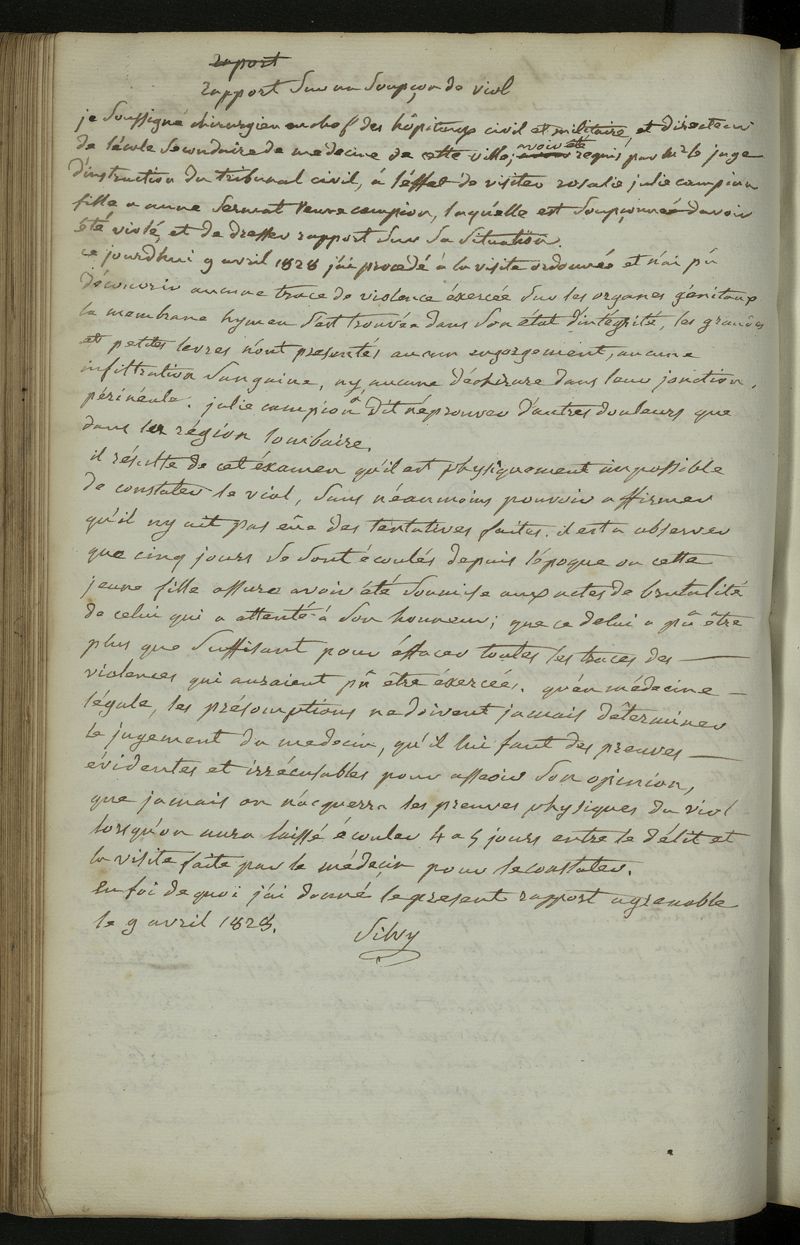 raport
rapport Sur un Soupçon de viol
je Soussigné chirurgien en chef des hôpitaux civil et militaire, et directeur
de lécole Secondaire de médecine de cette ville, avoir été requis par Mr le juge
d'instruction du tribunal civil, à léffet de visiter rosalie julie campion
fille a anne veuve campion, laquélle est Soupçonnée davoir
été violé, et de dresser rapport Sur Sa Situation.
ce jourdhui 9 avril 1828 j'ai procedé à la visite ordonnée et n'ai pû
découvrir aucune trace de violence éxercée Sur les organes génitaux
la membrane hymen S'est trouvée dans Son état d'intégrité, les grandes
et petites levres n'ont presentés aucun engorgement, aucune
infiltration Sanguine, ny aucune déchirure dans leur jonction
périnéale. julie campion dit n'éprouver d'autres douleurs que
dans la région lombaire.
il résulte de cet éxamen qu'il est physiquement impossible
de constater le viol, Sans néanmoins pouvoir affirmer
qu'il ny ait pas eûe des tentatives faites. il est a observer
que cinq jours Se Sont écoulés depuis l'époque ou cette
jeune fille assure avoir été Soumise aux actes de brutalité
de celui qui a attenté à Son honneur; que ce delai a pû être
plus que Suffisant pour éffacer toutes les traces des
violences qui auraient pû être éxercées. qu'en médecine
légale, les présomptions ne doivent jamais déterminer
le jugement du medecin, qu'il lui faut des preuves
évidentes et irrécusables pour asseoir Son opinion,
que jamais on n'acquerra les preuves physiques du viol
lorsqu'on aura laissé écouler 4 a 5 jours entre le délit et
la visite faite par le médecin pour le constater.
en foi de quoi j'ai donné le present rapport a grenoble
le 9 avril 1828.
Silvy